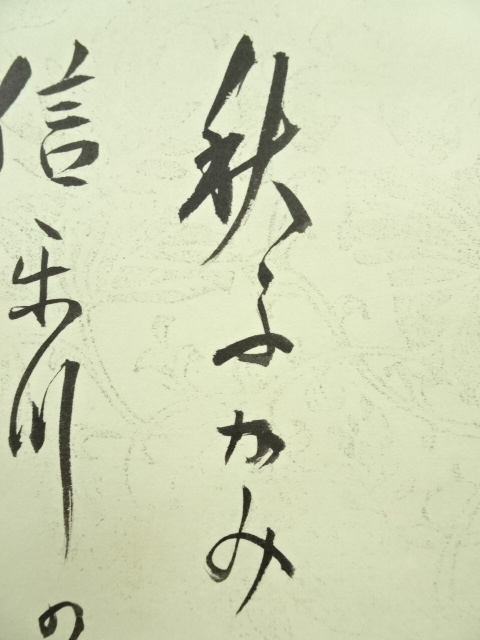 秋ふかみ
信楽川の